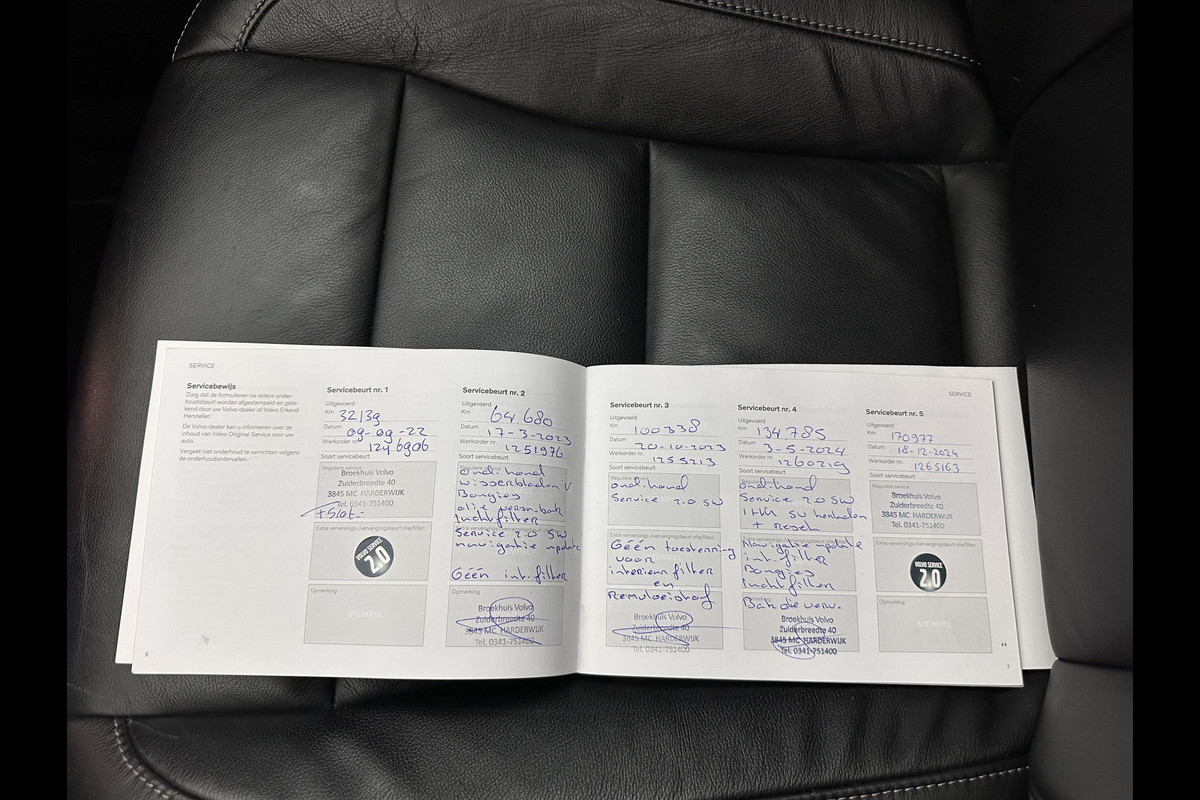 SERVICE
Servicebewijs
Zorg dat de formulieren na iedere onder-
houdsbeurt worden afgestempeld en gete-
kend door uw Volvo-dealer of Volvo Erkend
Hersteller.
De Volvo-dealer kan u informeren over de
inhoud van Volvo Original Service voor uw
auto.
Vergeet niet onderhoud te verrichten volgens
de onderhoudsintervallen.
6
Servicebeurt nr. 1
Uitgevoerd
Km 32139
Datum 09-09-22
Werkorder nr. 1246906
Soort servicebeurt
Reguliere service
Broekhuis Volvo
Zuiderbreedte 40
3845 MC HARDERWIJK
Tel. 0341-751400
Extra verversings-/vervangingsbeurt olie/filter:
VOLVO SERVICE
2.0
Opmerking
STEMPEL
Servicebeurt nr. 2
Uitgevoerd
Km 64680
Datum 17-3-2023
Werkorder nr. 1251976
Soort servicebeurt
ond.hand
wisserbladen V
Bougies
Luchtfilter
Service 2.0 SW
navigatie update
Géén int.filter
Broekhuis Volvo
Zuiderbreedte 40
3845 MC HARDERWIJK
Tel. 0341-751400
Servicebeurt nr. 3
Uitgevoerd
Km 100338
Datum 20-10-2023
Werkorder nr. 1255213
Soort servicebeurt
ond.hand
Service 2.0 SW
Géén toestemming
voor
interieurfilter
en
Remvloeistof
Broekhuis Volvo
Zuiderbreedte 40
3845 MC HARDERWIJK
Tel. 0341-751400
SERVICE
Servicebeurt nr. 4
Uitgevoerd
Km 134785
Datum 3-5-2024
Werkorder nr. 1260219
Soort servicebeurt
ond.hand
Service 2.0 SW
Navigatie update
int.filter
Bougies
Luchtfilter
Broekhuis Volvo
Zuiderbreedte 40
3845 MC HARDERWIJK
Tel. 0341-751400
Servicebeurt nr. 5
Uitgevoerd
Km 170977
Datum 18-12-2024
Werkorder nr. 1265163
Soort servicebeurt
Reguliere service
Broekhuis Volvo
Zuiderbreedte 40
3845 MC HARDERWIJK
Tel. 0341-751400
Extra verversings-/vervangingsbeurt olie/filter:
VOLVO SERVICE
2.0
Opmerking
STEMPEL
7